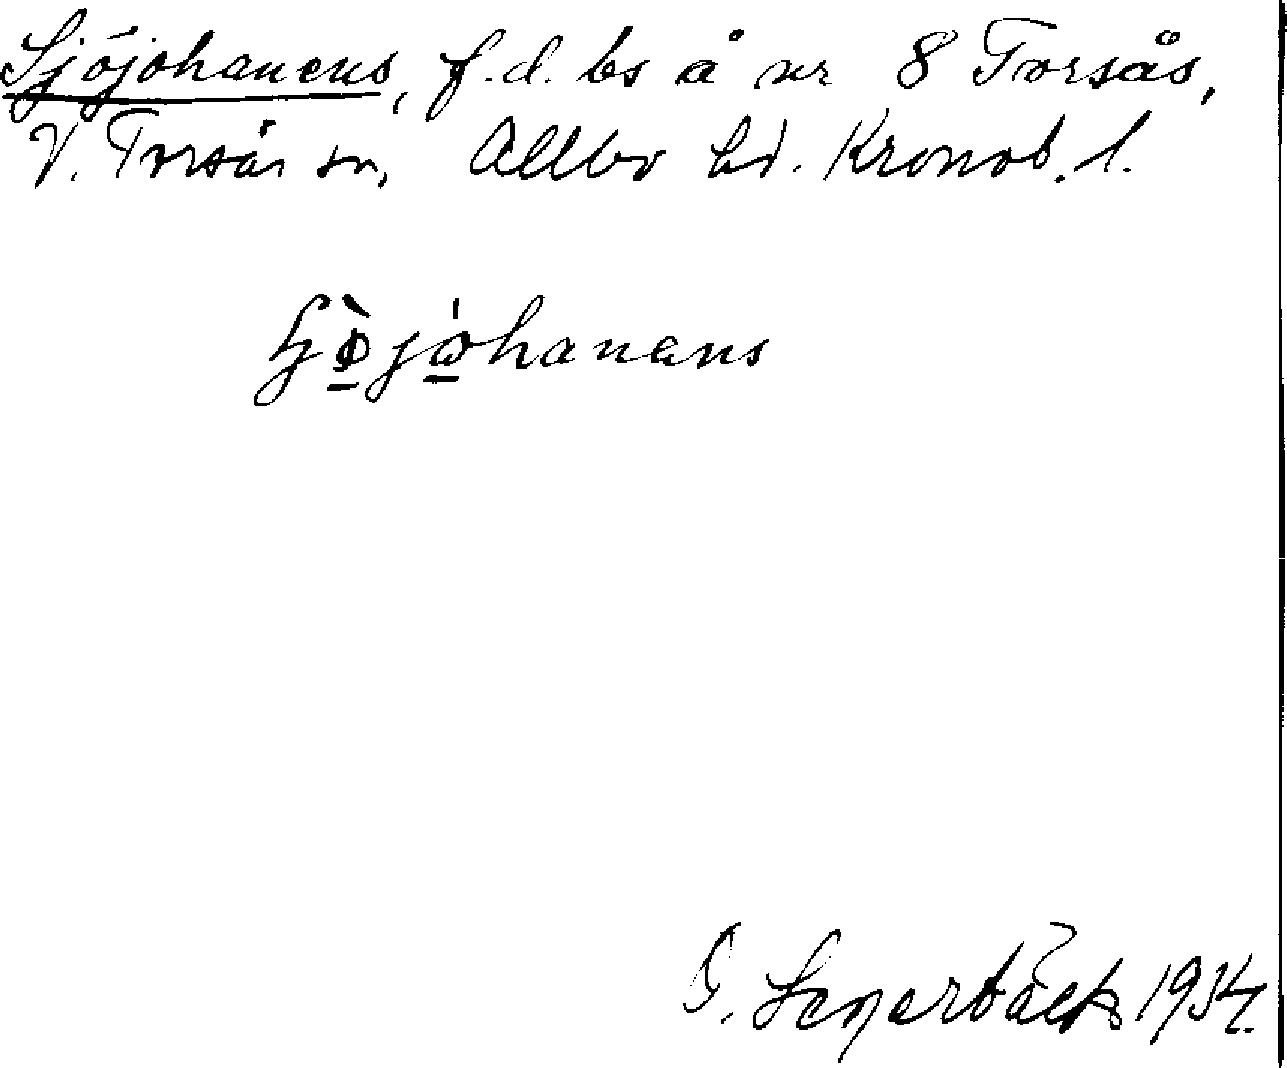 Sjöjohanens, f.d. bs å nr 8 Torsås,
V. Torsås sn, Allbo hd. Kronob. l.
johanens
G. 1934.